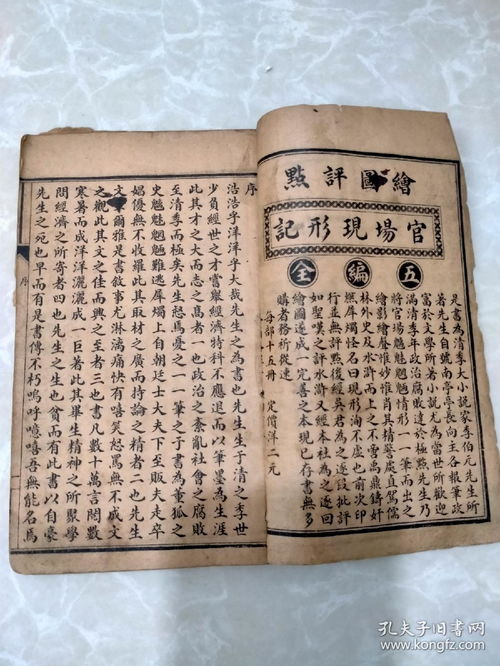 繪圖評點
官場現形記
五編全
是書為清季大小說家李伯元先生所
著先生自號南亭亭長向主各報筆政
富於文學所著小說尤為當世所歡迎
滿清季年政治腐敗達於極點先生乃
將官場魑魅魍魎情形一一筆而出之
繪影繪聲惟妙惟肖其精警處直駕儒
林外史及水滸而上之不啻禹鼎鑄奸
燃犀燭怪名曰現形洵不虛也前次印
行並無評點後經吳君為之逐段批評
如聖嘆之評水滸又經本社為之逐回
繪圖遂成一完善之本現已存書無多
購者務祈從速
每部十五冊 定價洋二元
序
浩浩乎洋洋乎大哉先生之為書也先生生于清之季世
少負經世之才嘗舉經濟特科不應退而以筆墨為生涯
此其才之大而志之高者一也政治之紊亂社會之腐敗
至清季而極矣先生怒焉憂之一一筆之于書為董狐之
史魑魅魍魎難逃犀燭上自朝廷士大夫下至販夫走卒
娼優無不收羅此其取材之廣而持論之精者二也先生
文 爾雅是書敘事尤淋漓痛快有嘻笑怒罵無不成文
之觀此其文之佳而興之至者三也書凡數十萬言閱數
寒暑而成洋洋灑灑成一巨著此其畢生精神之所聚學
問經濟之所寄者四也先生之生也貧而有此書以自豪
先生之死也早而有是書傳不朽嗚呼噫嘻吾無能名焉
序
孔夫子旧书网
www.kongfz.com